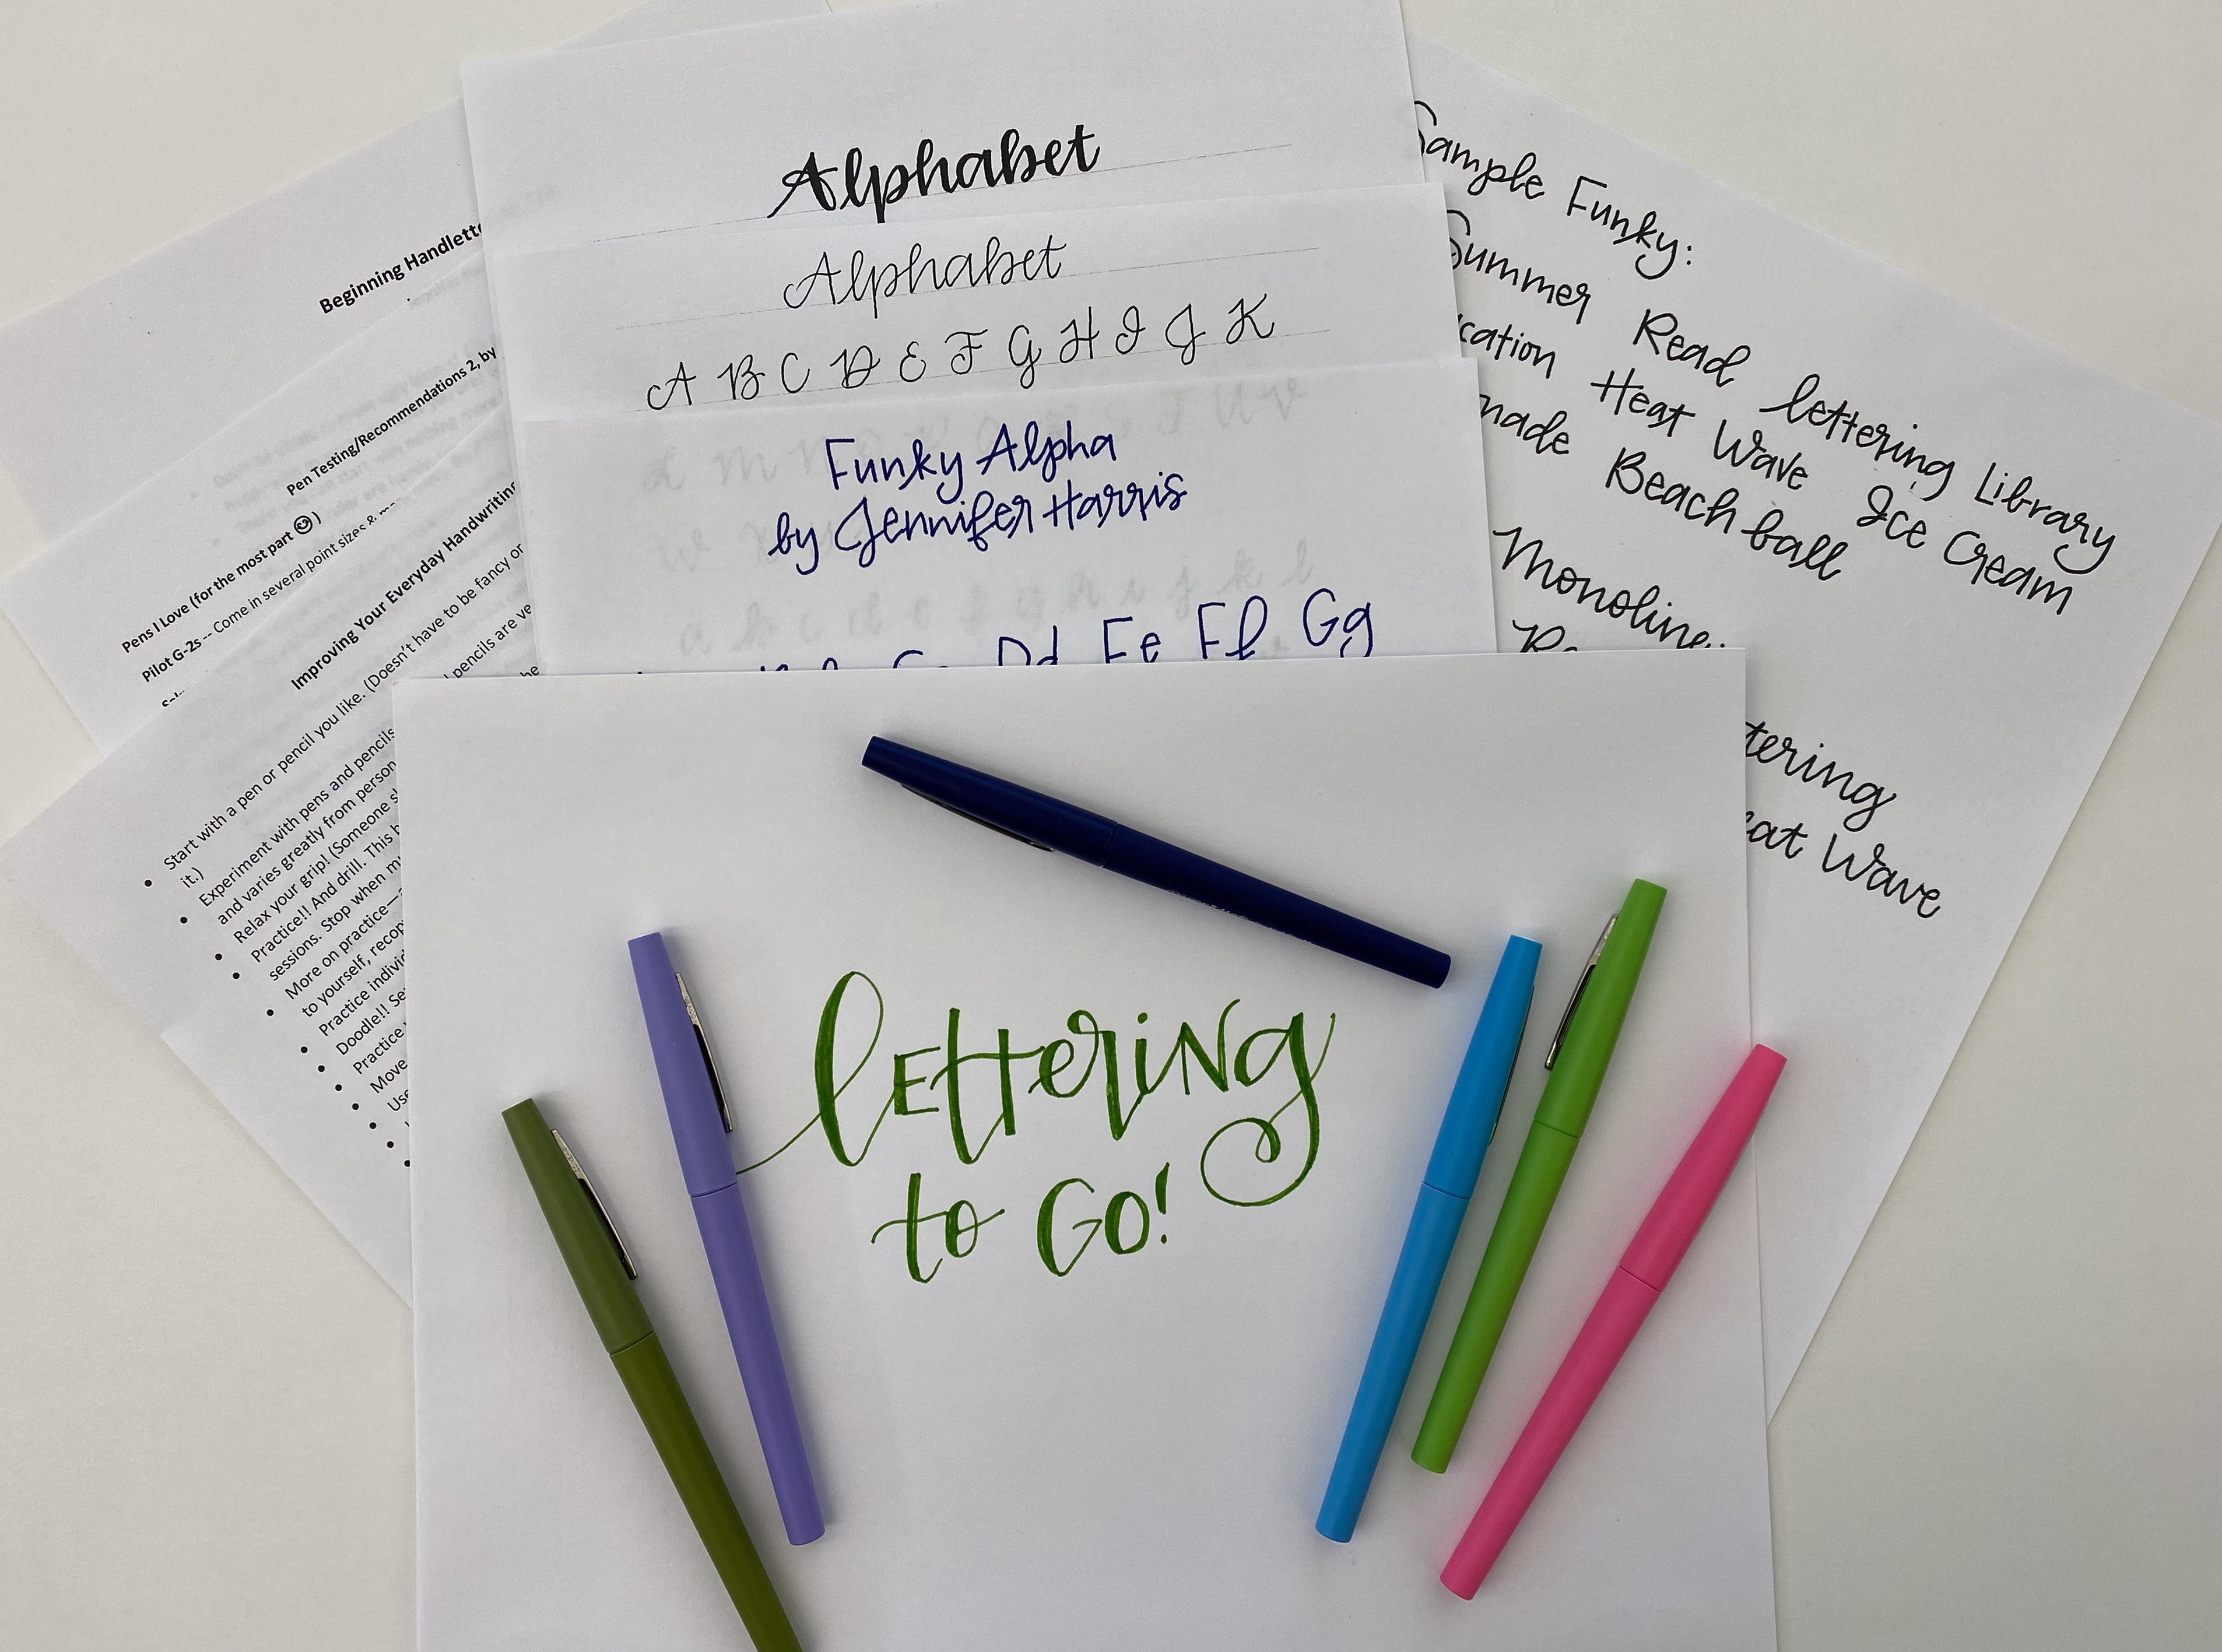 Beginning Handlette
Pen Testing/Recommendations 2, by
Pens I Love (for the most part 😉)
Pilot G-2s -- Come in several point sizes &
Improving Your Everyday Handwriting
Start with a pen or pencil you like. (Doesn't have to be fancy or
it.)
Experiment with pens and pencils
pencils are ve
and varies greatly from person
Relax your grip! (Someone
Practice!! And drill. This
sessions. Stop when
More on practice—
to yourself,
Practice
Doodle!!
Practice
Move
Alphabet
Alphabet
A B C D E F G H I J K
Funky Alpha
by Jennifer Harris
Dd Ee Ff Gg
Sample Funky:
Summer Read lettering Library
cation Heat Wave Ice Cream
nade Beach ball
Monoline:
tering
eat Wave
lettering
to Go!